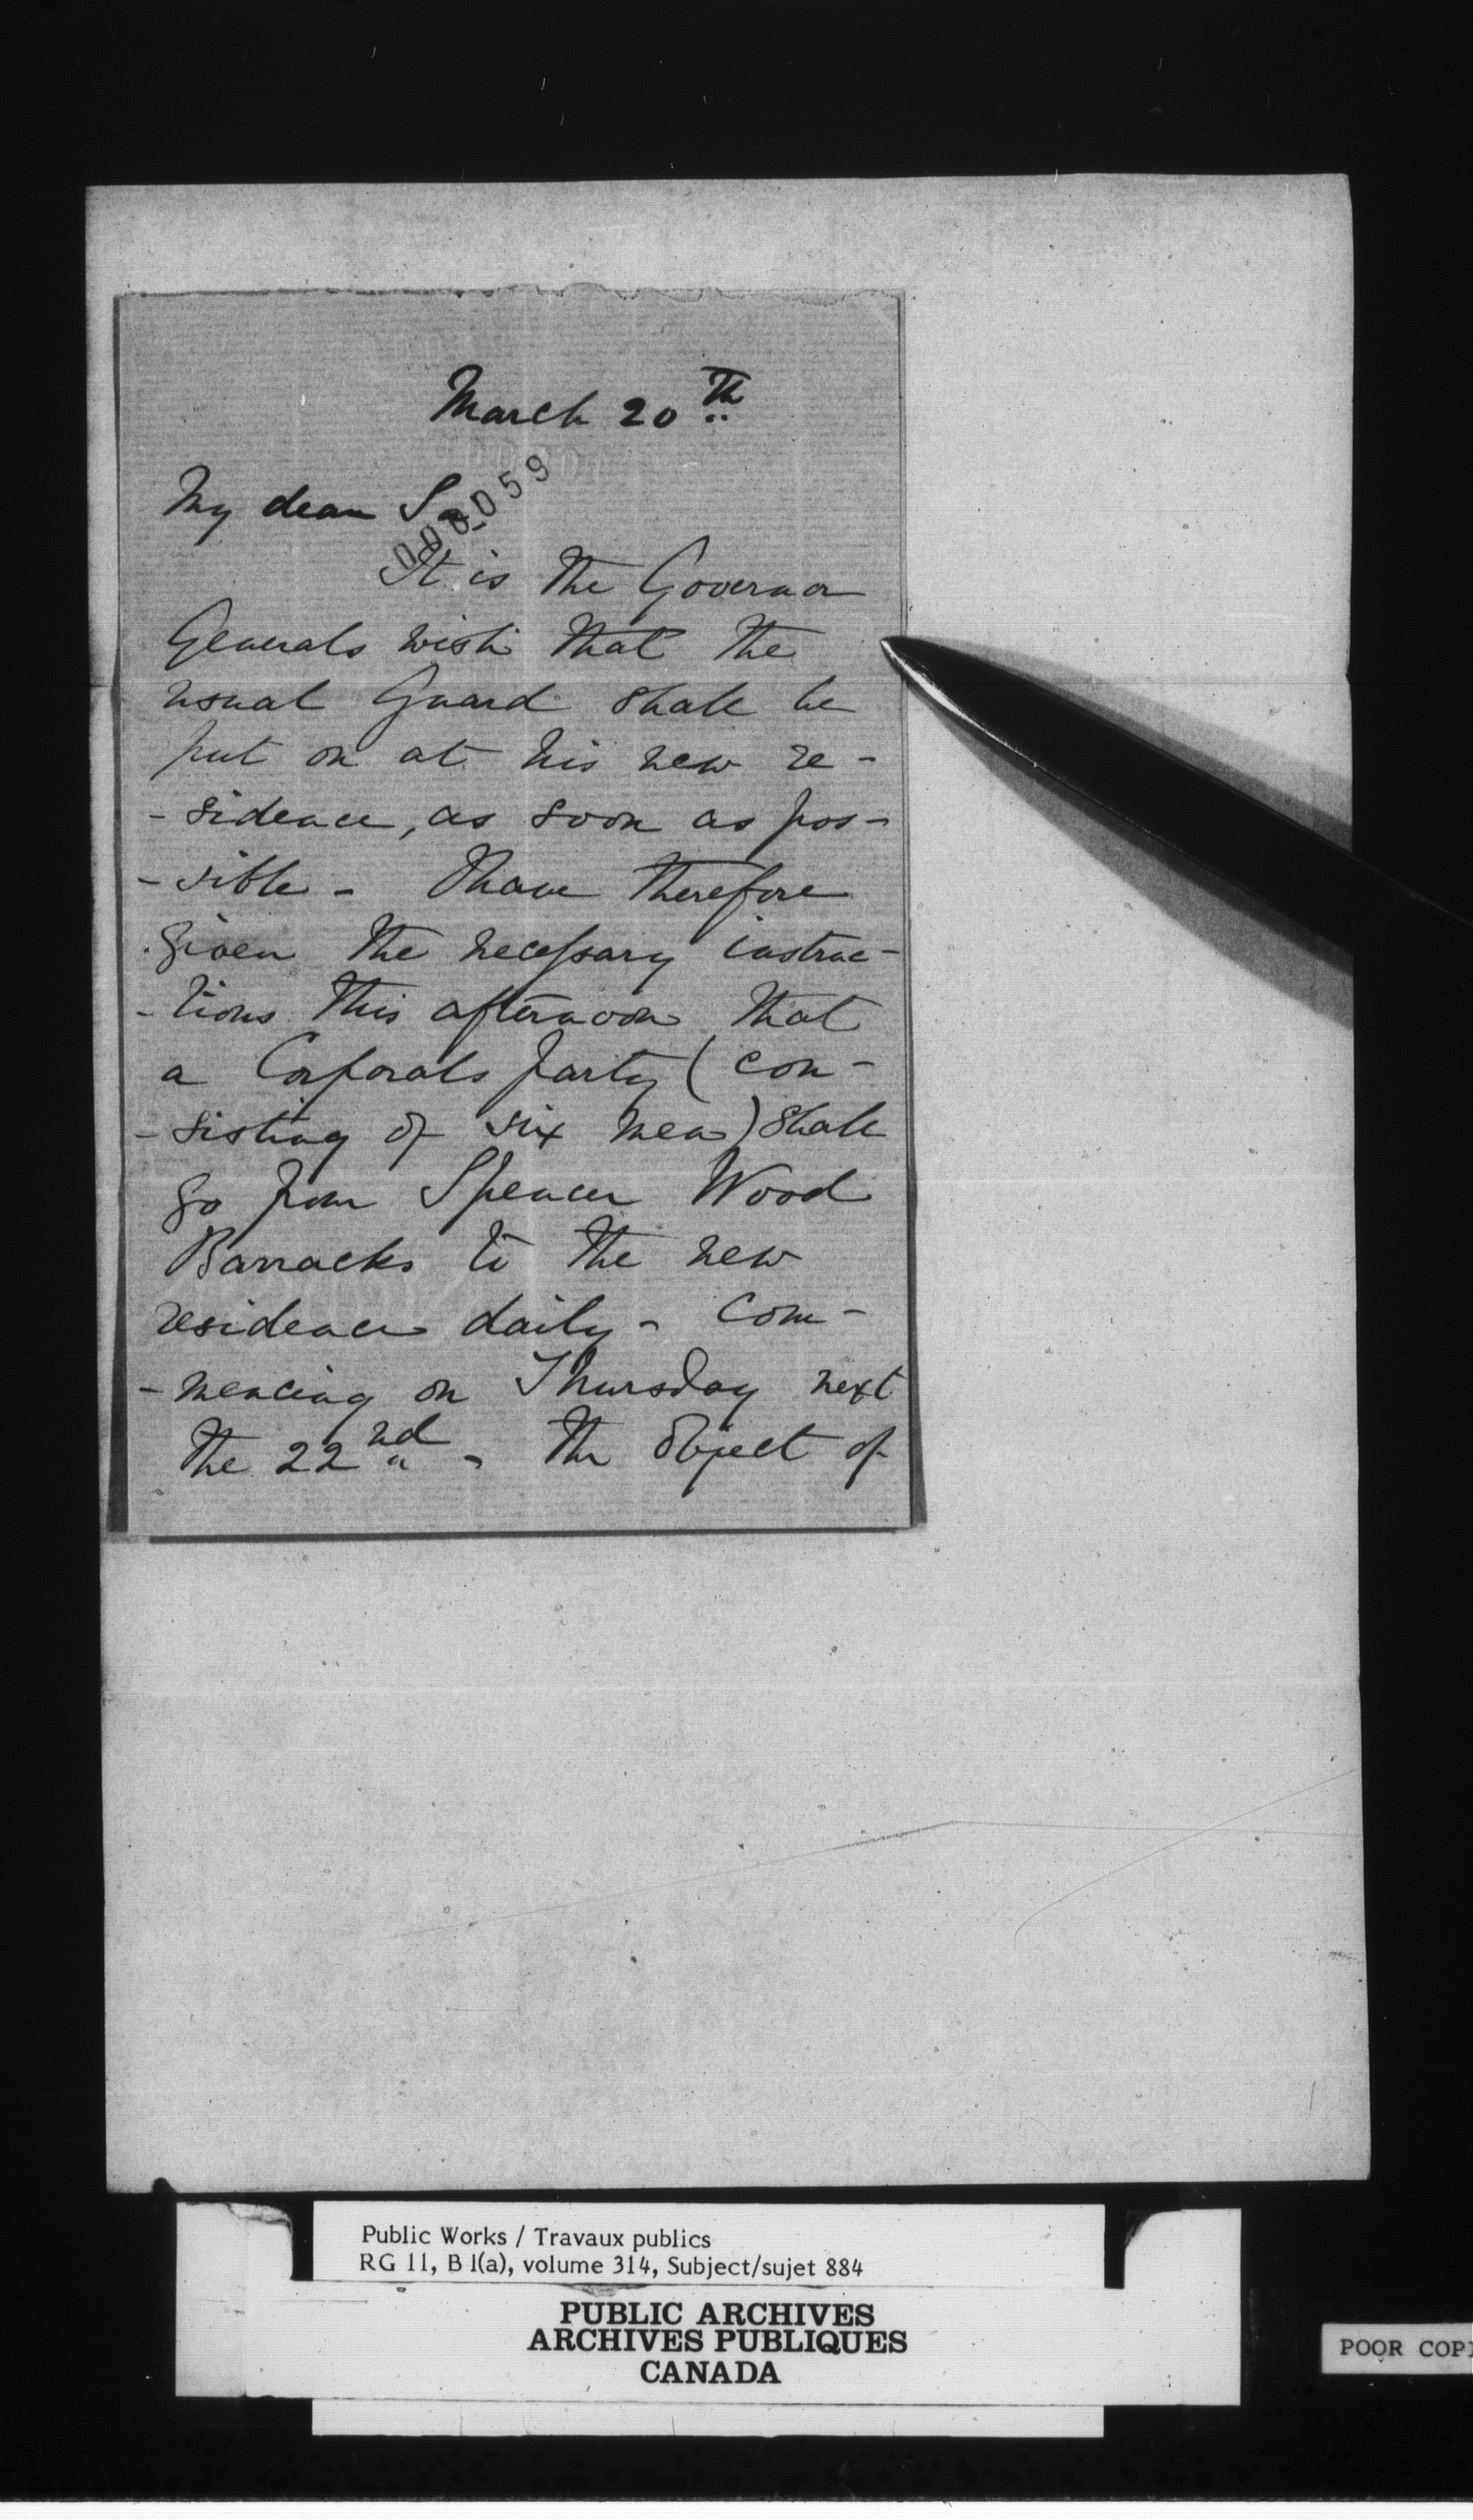 March 20th
My dear Sir
000059
It is the Governor
Generals wish that the
usual Guard shall be
put on at his new re-
- sidence, as soon as pos-
- sible - I have therefore
given the necessary instruc-
- tions this afternoon that
a Corporals party (con-
- sisting of six men) shall
go from Spencer Wood
Barracks to the new
residence daily - Com-
- mencing on Thursday next
the 22nd - The object of
Public Works / Travaux publics
RG 11, B 1(a), volume 314, Subject/sujet 884
PUBLIC ARCHIVES
ARCHIVES PUBLIQUES
CANADA
POOR COP